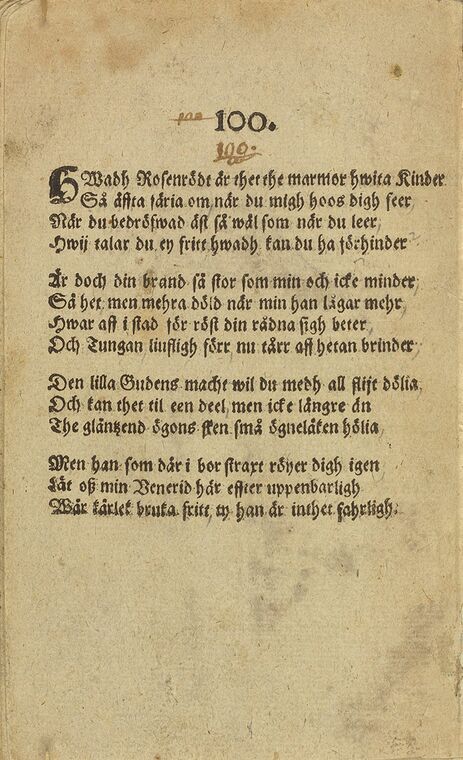 100.
100.
HWadh Rosenrödt är thet the marmor hwita Kinder
Så åffta färja om når du migh hoos digh seer
När du bedröfwad äst så wäl som när du leer,
Hwij talar du ey fritt hwadh kan du ha förhinder
Är doch din brand så stor som min och icke minder,
Så het, men mehra döld når min han lågar mehr,
Hwar aff i stad för röst din rådna sigh beter,
Och Tungan liufligh förr nu tårr aff hetan brinder,
Den lilla Gudens macht wil du medh all flijt dölia,
Och kan thet til een deel, men icke längre än
The gläntzend ögons sken små ögneläken hölia,
Men han som där i bor straxt röyer digh igen
Låt oß min Venerid här effter uppenbarligh
Wår kärlek bruka fritt, ty han är inthet fahrligh.